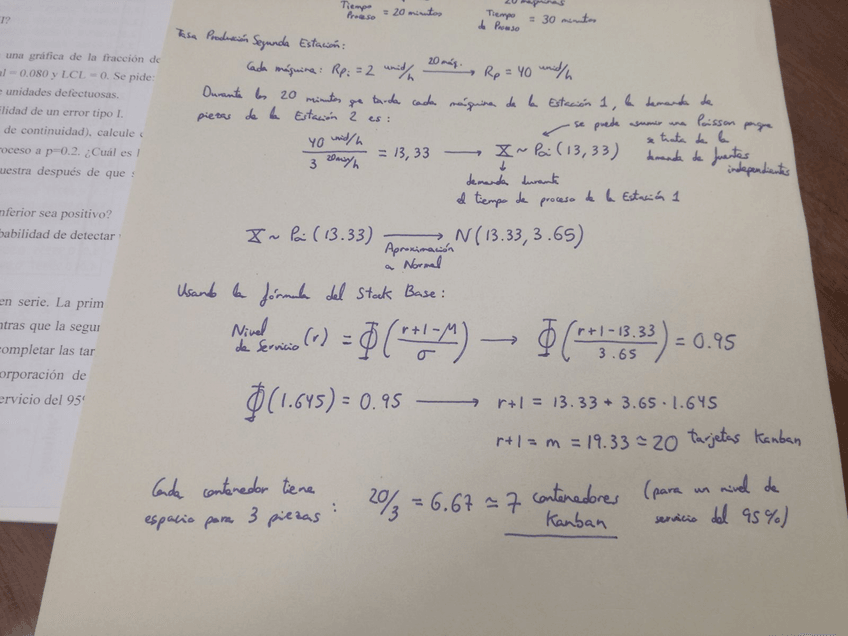 20 máquinas
Tiempo Proceso = 20 minutos
Tiempo de Proceso = 30 minutos
Tasa Producción Segunda Estación:
Cada máquina: Rpi = 2 unid/h 20 máq. → Rp = 40 unid/h
Durante los 20 minutos que tarda cada máquina de la Estación 1, la demanda de
piezas de la Estación 2 es:
se puede asumir una Poisson porque
se trata de la
demanda de fuentes
independientes
40 unid/h / 3 /h = 13,33 → X ~ Poi (13,33)
↓
demanda durante
el tiempo de proceso de la Estación 1
X ~ Poi (13.33) → N(13.33, 3.65)
Aproximación
a Normal
Usando la fórmula del Stock Base:
Nivel de Servicio (r) = Φ((r+1-M)/σ) → Φ((r+1-13.33)/3.65) = 0.95
Φ(1.645) = 0.95 → r+1 = 13.33 + 3.65 · 1.645
r+1 = m = 19.33 ≃ 20 tarjetas Kanban
Cada contenedor tiene
espacio para 3 piezas: 20/3 = 6.67 ≃ 7 contenedores Kanban (para un nivel de
servicio del 95%)
una gráfica de la fracción de
= 0.080 y LCL = 0. Se pide:
unidades defectuosas.
ilidad de un error tipo I.
de continuidad), calcule
roceso a p=0.2. ¿Cuál es l
uestra después de que s
nferior sea positivo?
babilidad de detectar
en serie. La prim
ntras que la segun
completar las tar
orporación de
ervicio del 95%